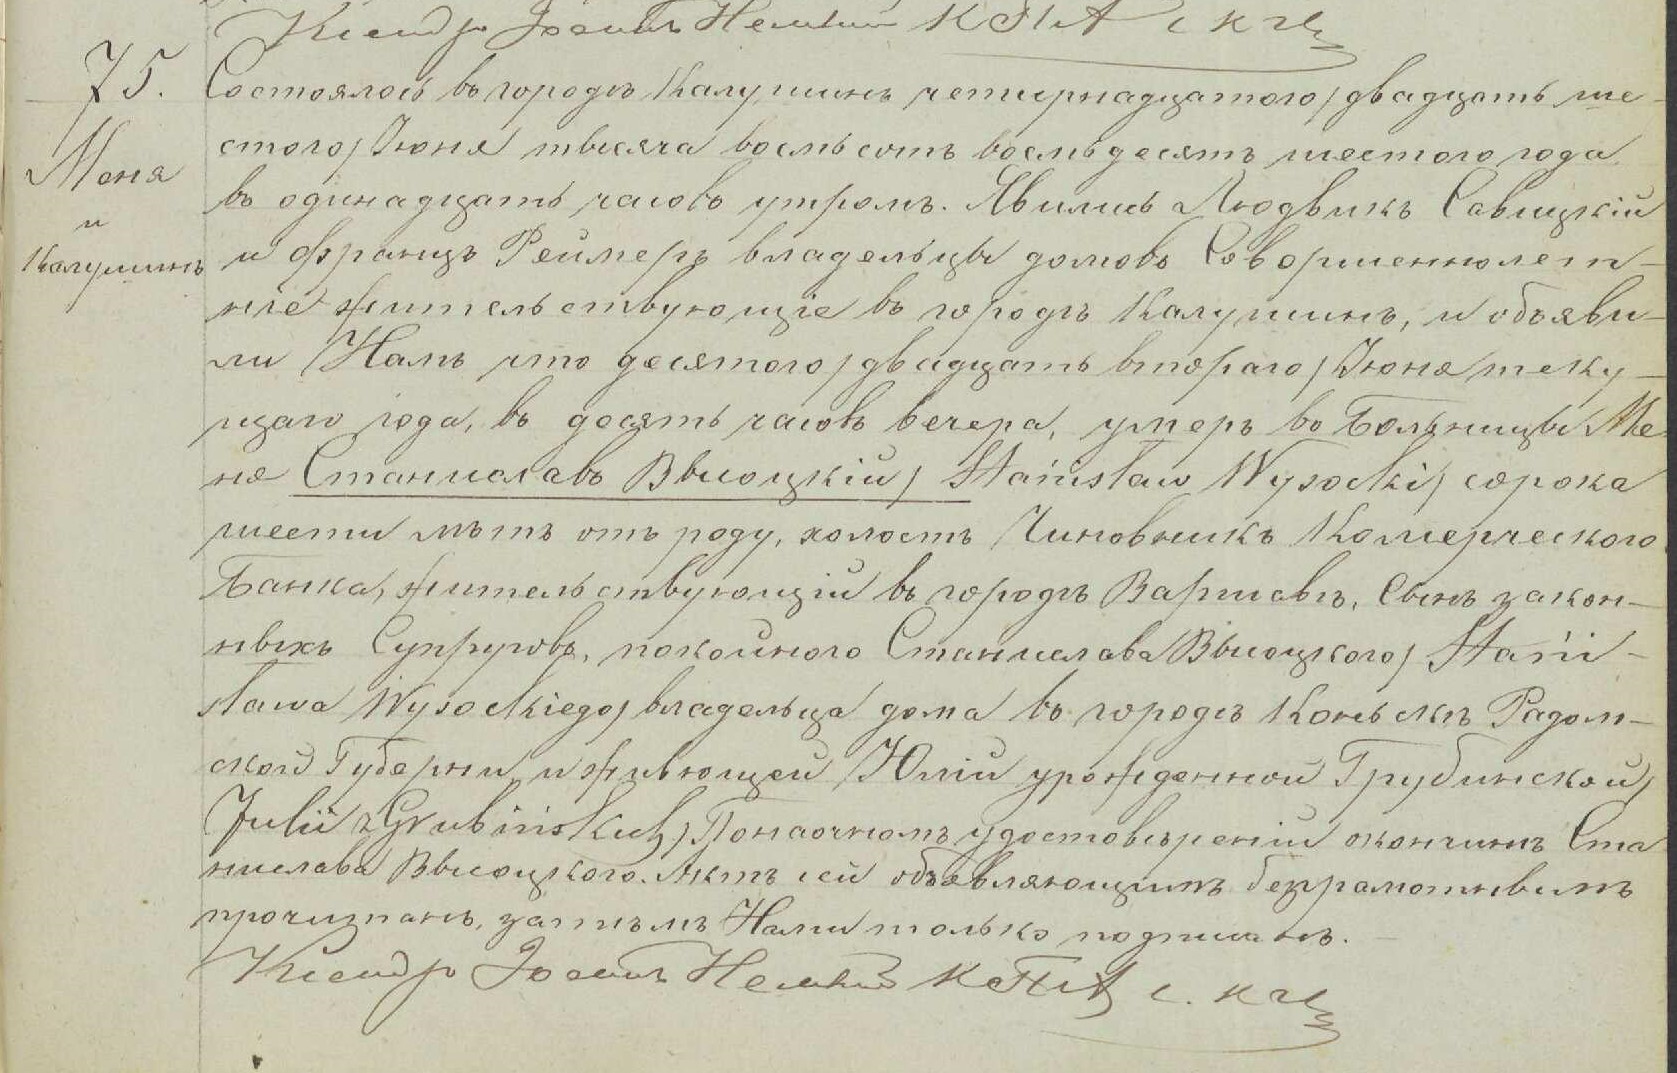 75.
Меня
и
Калушинъ
Состоялось въ городѣ Калушинѣ четырнадцатого/двадцать ше-
стого/Іюня тысяча восемьсотъ восемьдесятъ шестого года
въ одинадцать часовъ утромъ. Явились Людвикъ Савицкій
и Францъ Реймеръ владельцы домовъ Совершеннолет-
ніе жительствующіе въ городѣ Калушинѣ, и объяви-
ли Намъ что десятого/двадцать второго/Іюня теку-
щаго года, въ десять часовъ вечера, умеръ во Больницы Ме-
не Станиславъ Высоцкій/Stanisław Wysocki/сорока
шести лѣтъ отъ роду, холостъ Чиновникъ Комерческого
Банка, жительствующій въ городѣ Варшавѣ, Сынъ закон-
ныхъ Супруговъ, покойного Станислава Высоцкого/Stani-
sława Wysockiego/владельца дома въ городѣ Коньскъ Радом-
ской Губерни и живющей Юлій урожденной Грубинской/
Julii z Grubińskich/По наочномъ удостовѣреніи окончинѣ Ста
нислава Высоцкого. Актъ сей объявляющимъ безграмотнымъ
прочитанъ, затѣмъ Нами только подписанъ.